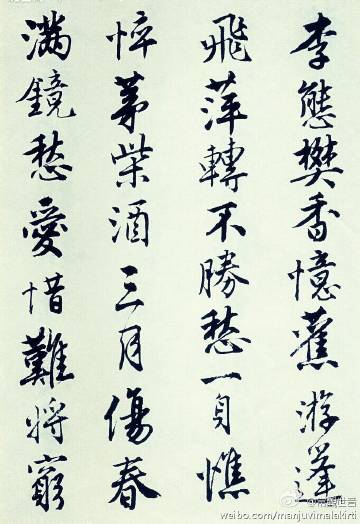 李態樊香憶舊游蓬
飛萍轉不勝愁一身憔
悴茅柴酒三月傷春
滿鏡愁愛惜難將窮
weibo.com/manjuvimalakirti